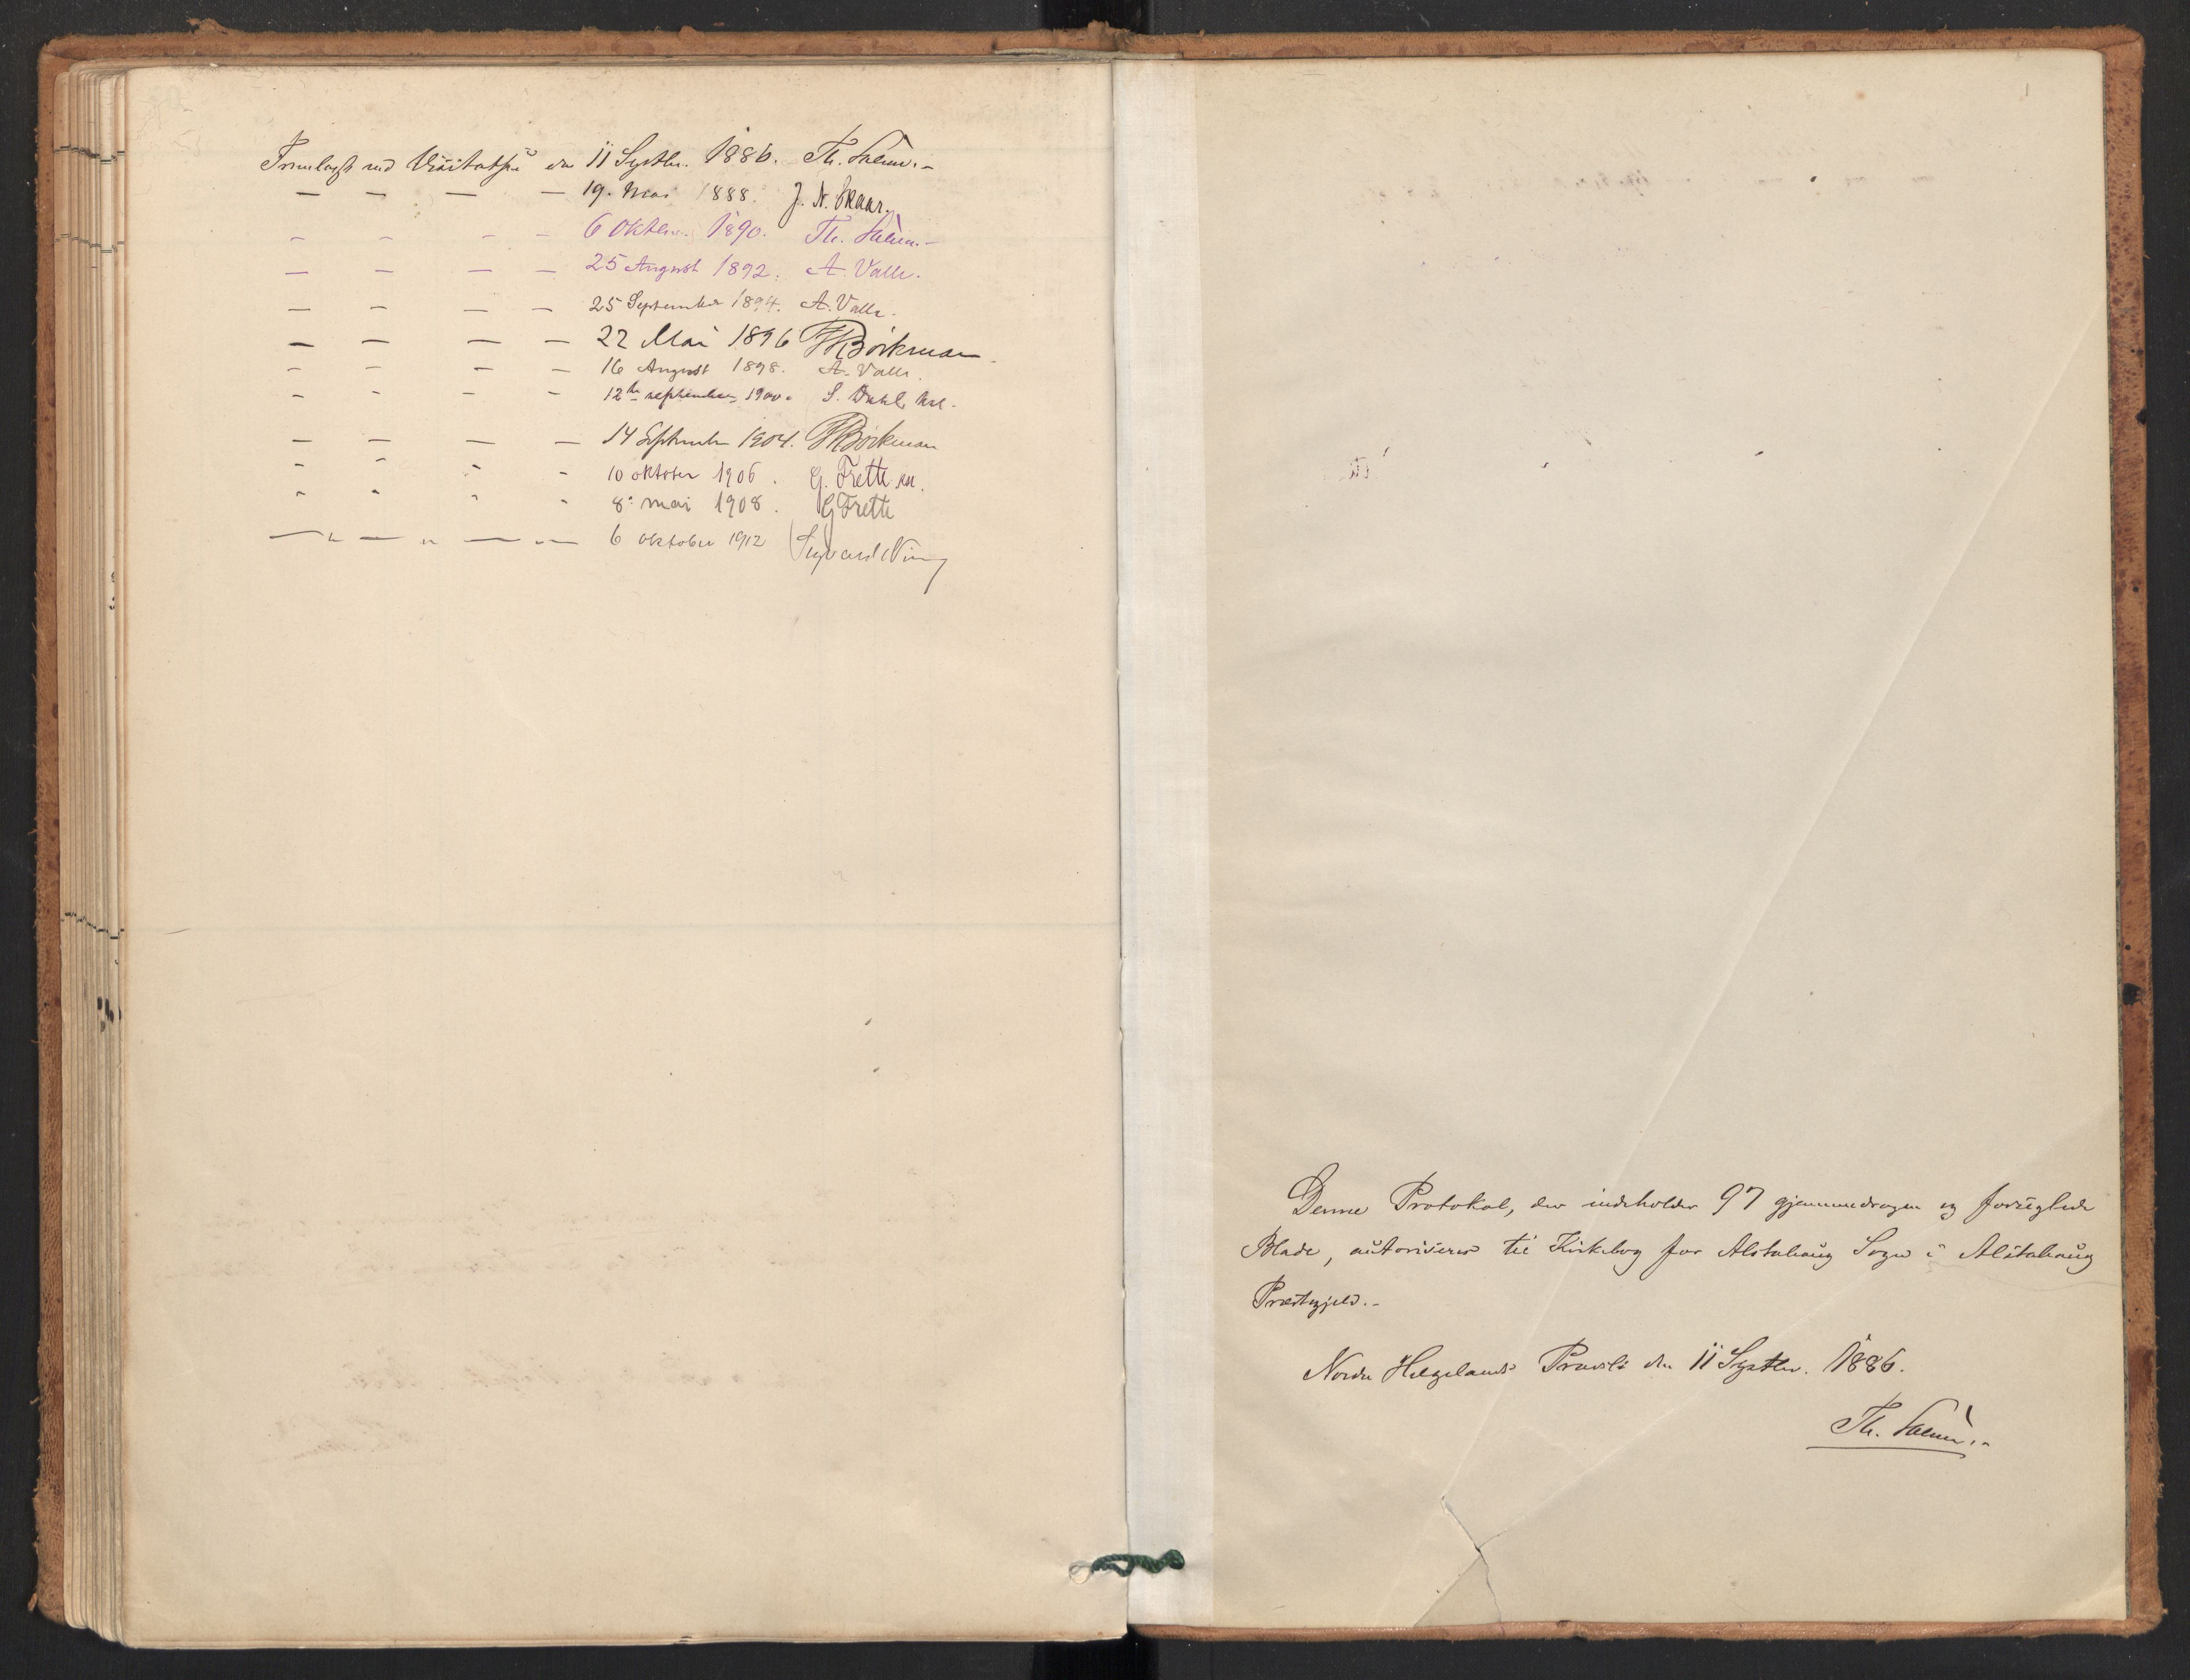 Fremlagt ved Visitatsen den 11 Septbr. 1886. Th.
— — — — 19. Mai 1888. J. N. Skaar.
— — — — 6 Oktbr. 1890. Th.
— — — — 25 August 1892. A. Valle.
— — — — 25 September 1894. A. Valle.
— — — — 22 Mai 1896 Böckman.
— — — — 16 August 1898. A. Valle.
- - - - 12te september 1900. S. Dahl,
— — — — 14 September 1904. Böckman
- - - - 10 oktober 1906. G. Frette
" " " " 8. mai 1908. G Frette
— " — " — " — 6 oktober 1912
1
Denne Protokol, der indeholder 97 gjennemdragne og forseglede
Blade, autoriseres til Kirkebog for Alstahaug Sogn i Alstahaug
Præstegjeld.-
Nordre Helgelands Provsti den 11 Septbr. 1886.
Th.